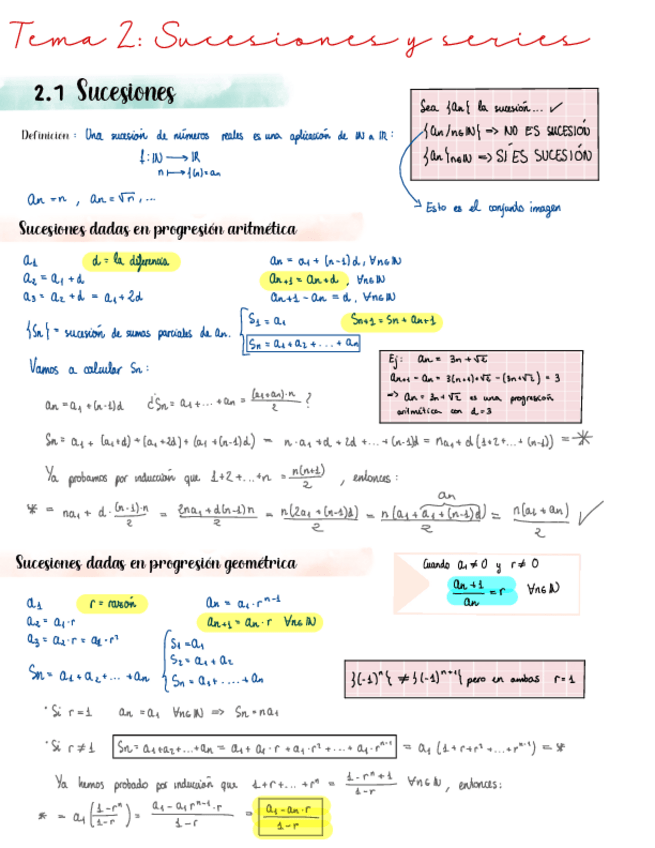 Tema 2: Sucesiones y series
2.1 Sucesiones
Sea }an{ la sucesión... ✓
{an/n∈ℕ} => NO ES SUCESIÓN
}an{n∈ℕ => SÍ ES SUCESIÓN
Esto es el conjunto imagen
Definición: Una sucesión de números reales es una aplicación de ℕ a ℝ:
f: ℕ → ℝ
n ↦ f(n)=an
an = n , an = √n , ...
Sucesiones dadas en progresión aritmética
a1 d = la diferencia an = a1 + (n-1)d, ∀n∈ℕ
a2 = a1 + d an+1 = an + d, ∀n∈ℕ
a3 = a2 + d = a1 + 2d an+1 - an = d, ∀n∈ℕ
{Sn} = sucesión de sumas parciales de an. S1 = a1 Sn+1 = Sn + an+1
Sn = a1 + a2 + ... + an
Vamos a calcular Sn:
Ej: an = 3n + √2
an+1 - an = 3(n+1)+√2 - (3n+√2) = 3
=> an = 3n + √2 es una progresión
aritmética con d = 3
an = a1 + (n-1)d ¿Sn = a1 + ... + an = (a1+an)·n/2 ?
Sn = a1 + (a1+d) + (a1+2d) + (a1 + (n-1)d) = n·a1 + d + 2d + ... + (n-1)d = na1 + d(1+2+...+(n-1)) = *
Ya probamos por inducción que 1+2+...+n = n(n+1)/2 , entonces:
* = na1 + d·(n-1)·n/2 = 2na1 + d(n-1)n/2 = n(2a1 + (n-1)d)/2 = n(a1 + a1 + (n-1)d)/2 = n(a1 + an)/2 ✓
an
Sucesiones dadas en progresión geométrica
Cuando a1 ≠ 0 y r ≠ 0
an+1/an = r ∀n∈ℕ
a1 r = razón an = a1·r^n-1
a2 = a1·r an+1 = an·r ∀n∈ℕ
a3 = a2·r = a1·r²
S1 = a1
S2 = a1 + a2
Sn = a1 + a2 + ... + an Sn = a1 + .... + an
}(-1)^n{ ≠ }(-1)^n+1{ pero en ambas r = 1
· Si r = 1 an = a1 ∀n∈ℕ => Sn = na1
· Si r ≠ 1 Sn = a1+a2+...+an = a1 + a1·r + a1·r² + ... + a1·r^n-1 = a1 (1+r+r²+...+r^n-1) = *
Ya hemos probado por inducción que 1+r+...+r^n = 1-r^n+1/1-r ∀n∈ℕ, entonces:
* = a1 (1-r^n/1-r) = a1 - a1r^n-1·r/1-r = a1 - an·r/1-r